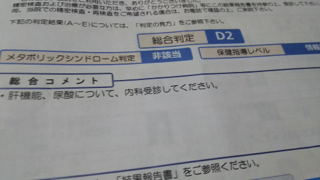 下記の判定結果(A~E)については、「判定の見方」をご参照下さい。
総合判定 D2
メタボリックシンドローム判定 非該当 保健指導レベル 情報
総合コメント
・肝機能、尿酸について、内科受診してください。
「結果報告書」をご参照ください。